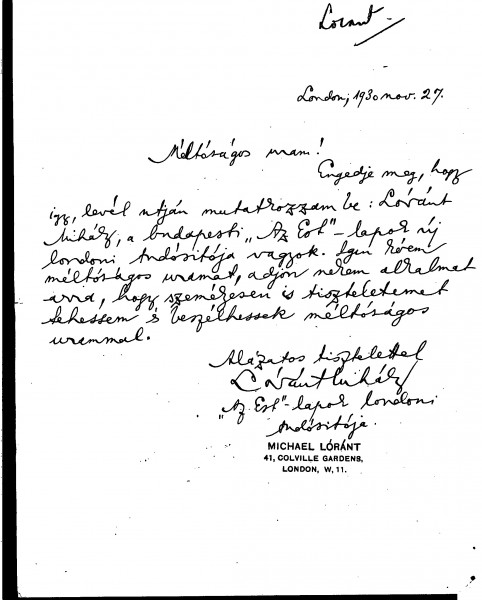 Lorant
London, 1930 nov. 27.
Méltóságos uram!
Engedje meg, hogy
így, levél utján mutatkozzam be: Lóránt
Mihály, a budapesti „Az Est"-lapok új
londoni tudósítója vagyok. Igen kérem
méltóságos uramat, adjon nekem alkalmat
arra, hogy személyesen is tiszteletemet
tehessem és beszélhessek méltóságos
urammal.
Alázatos tisztelettel
Lóránt Mihály
„Az Est"-lapok londoni
tudósítója.
MICHAEL LÓRÁNT
41, COLVILLE GARDENS,
LONDON, W, 11.